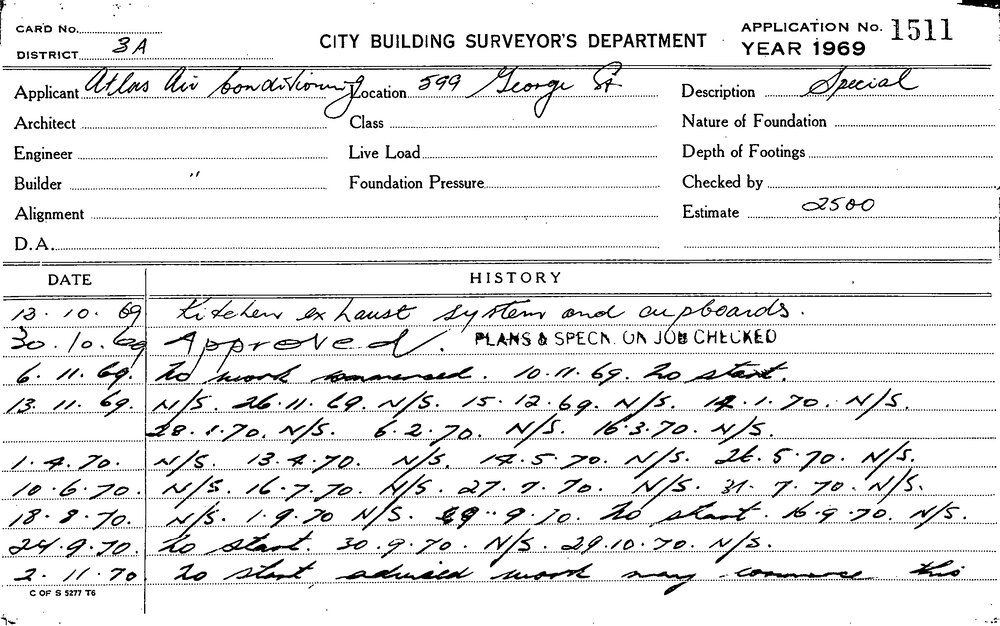 CARD No.
DISTRICT 3A
CITY BUILDING SURVEYOR'S DEPARTMENT
APPLICATION No. 1511
YEAR 1969
Applicant Atlas Air Conditioning Location 599 George St Description Special
Architect Class Nature of Foundation
Engineer Live Load Depth of Footings
Builder " Foundation Pressure Checked by
Alignment Estimate 2500
D.A.
DATE HISTORY
13.10.69 Kitchen exhaust system and cupboards.
30.10.69 Approved. PLANS & SPECN. ON JOB CHECKED
6.11.69. No work commenced. 10.11.69. No start.
13.11.69. N/S. 26.11.69. N/S. 15.12.69. N/S. 14.1.70. N/S.
28.1.70. N/S. 6.2.70. N/S. 16.3.70. N/S.
1.4.70. N/S. 13.4.70. N/S. 14.5.70. N/S. 26.5.70. N/S.
10.6.70. N/S. 16.7.70. N/S. 27.7.70. N/S. 31.7.70. N/S.
18.8.70. N/S. 1.9.70 N/S. 9.70. No start. 16.9.70. N/S.
24.9.70. No start. 30.9.70. N/S. 29.10.70. N/S.
2.11.70 No start advised work may commence this
C OF S 5277 T6